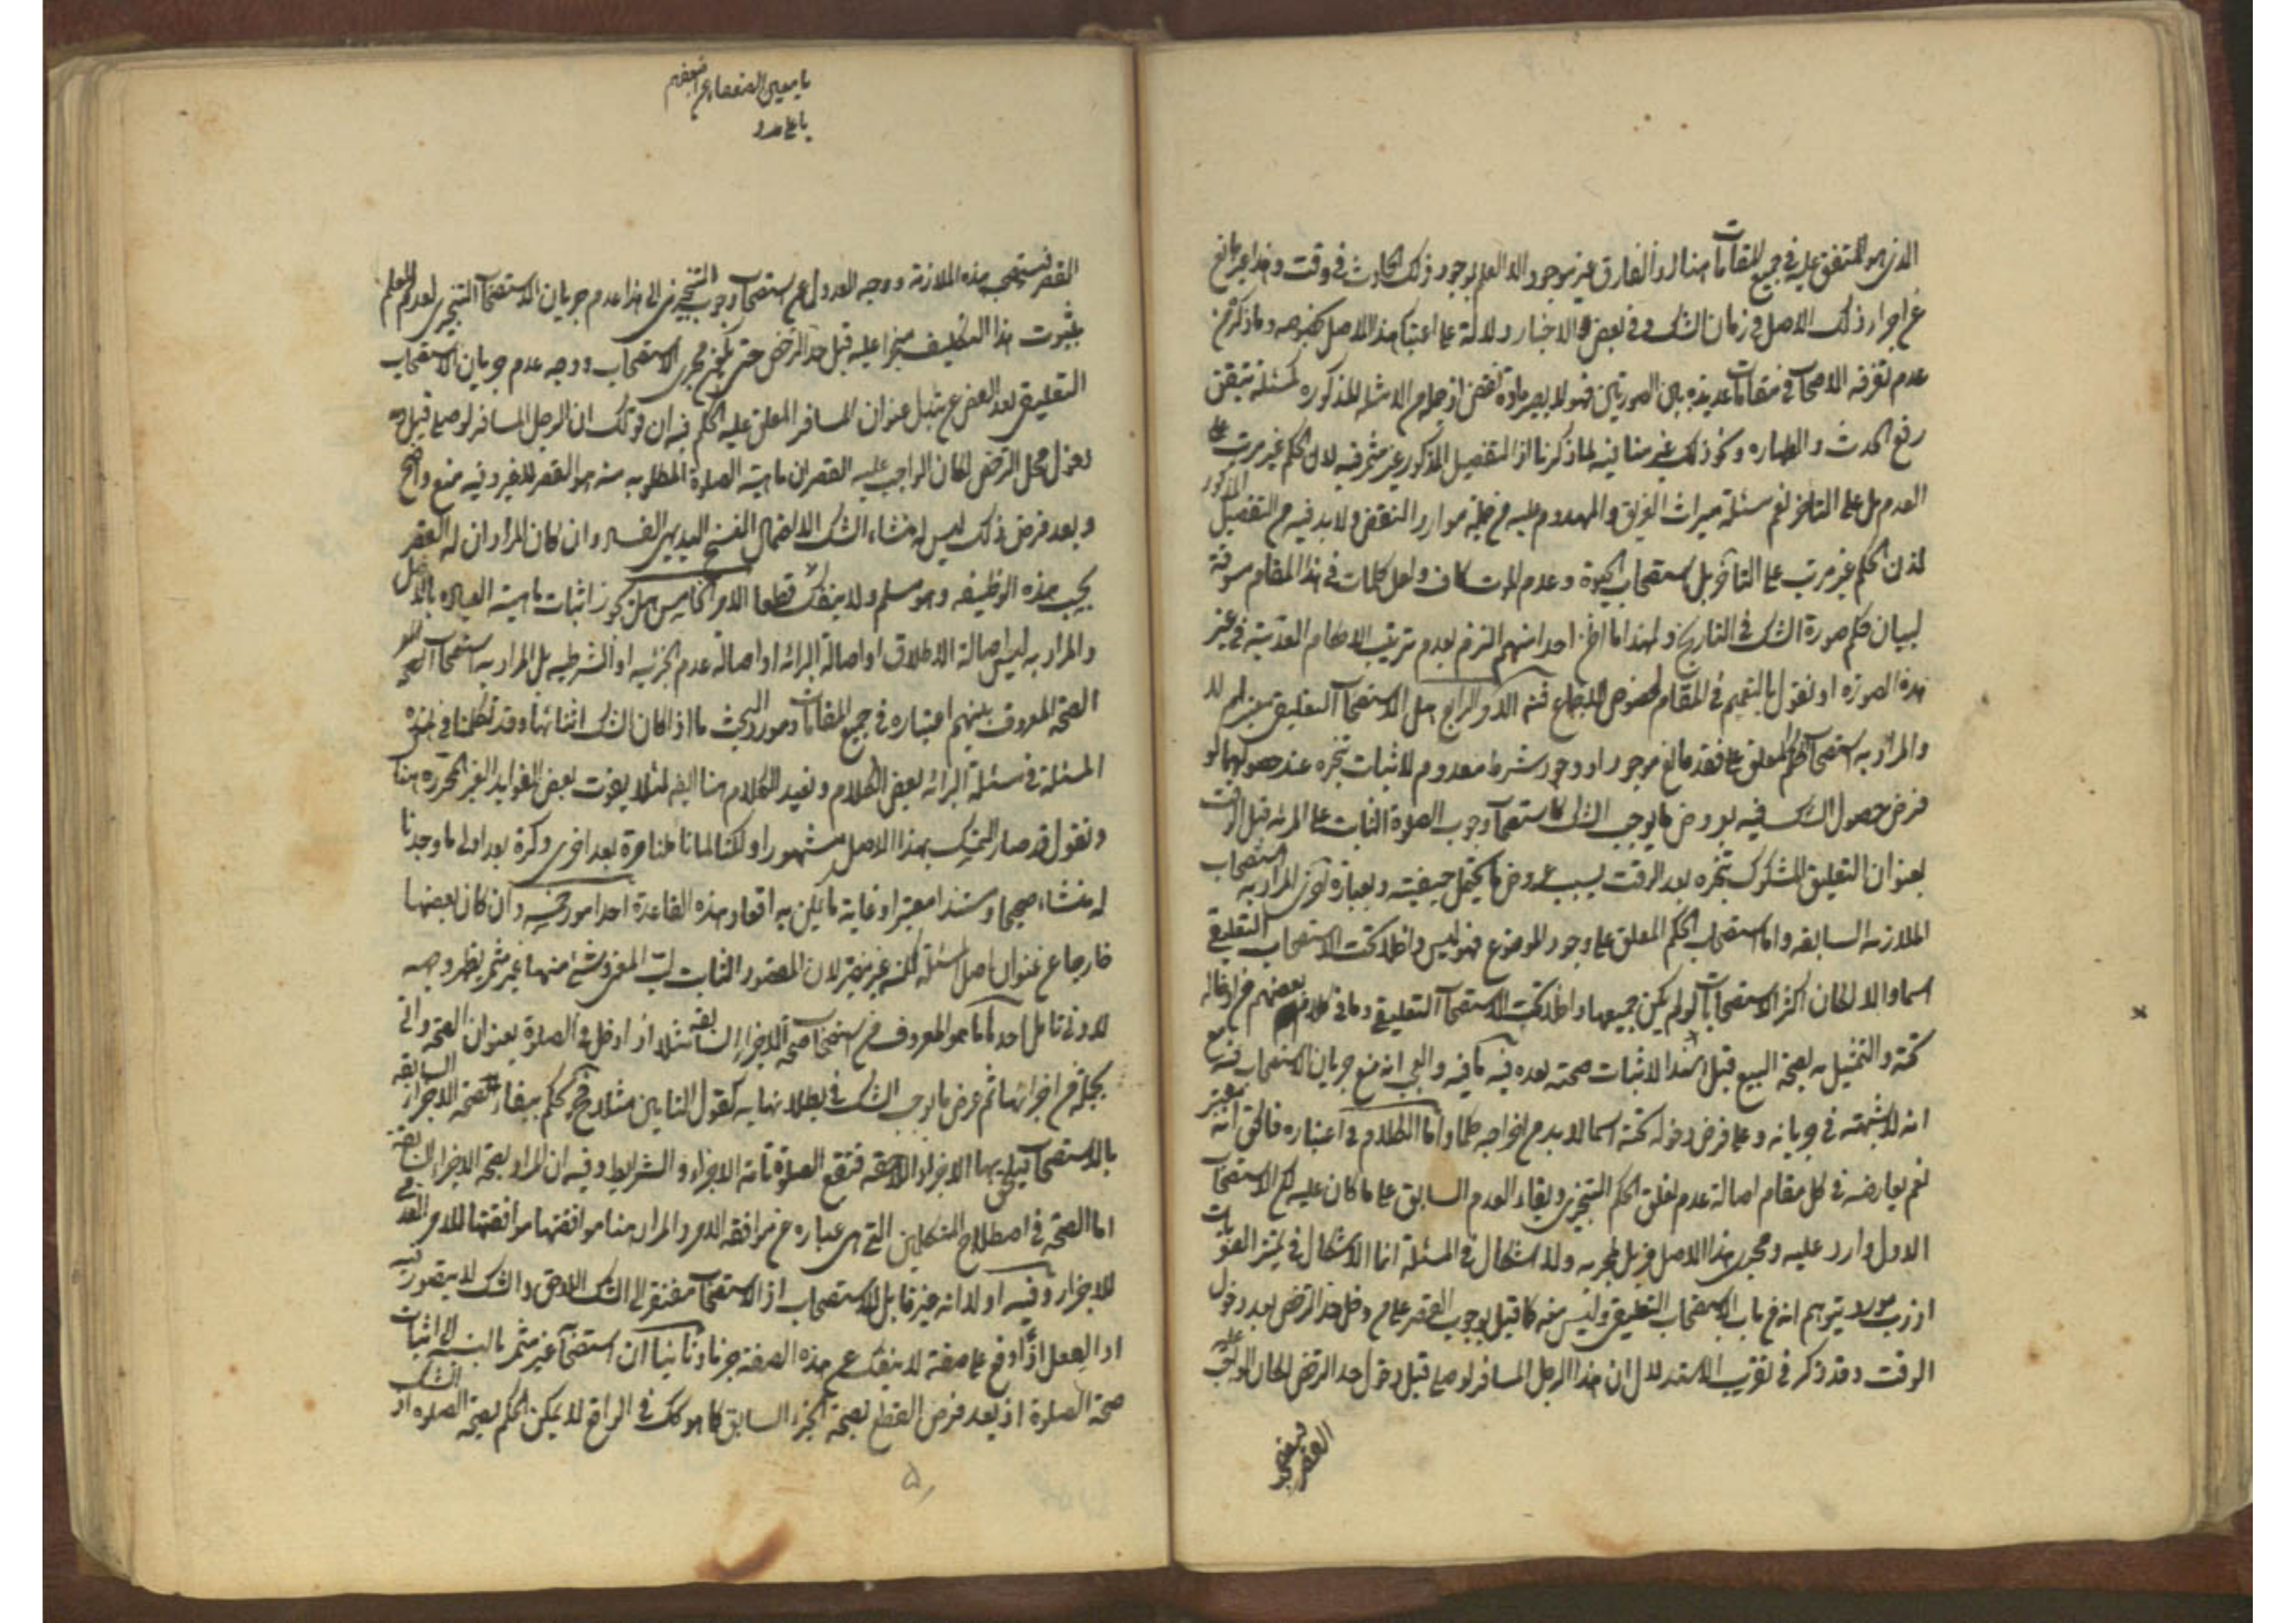 الذى هو المتفق عليه فى جميع المقامات هنا اذ الفارق غير موجود الا العلم بوجود ذلك الحادث فى وقت و هذا غير مانع
عن اجراء ذلك الاصل فى زمان الشك و فى بعض الاخبار دلالة على اعتبار هذا الاصل بخصوصه و ما ذكر من
عدم تفرقه الاصحاب فى مقامات عديده بين الصورتين فهو لا يصير مادة نقض اذ جلهم الامثله المذكوره كمسئلة تيقن
رفع الحدث و الطهاره و نحو ذلك غير منافيه لما ذكرنا اذ التفصيل المذكور غير مثمر فيه لان الحكم غير مرتب على
العدم بل على التاخر نعم مسئلة ميراث الغرقى و المهدوم عليه من جملة موارد النقض و لا بد فيه من التفصيل المذكور
لان الحكم غير مرتب على التاخر بل استصحاب الحيوة و عدم الموت كاف و لعل كلمات فى هذا المقام مسوقة
لبيان حكم صورة الشك فى التاريخ و لهذا ما احد منهم التزم بعدم ترتيب الاحكام العدمية فى غير
هذه الصورة او نقول بالتعميم فى المقام لخصوص الاجماع فتم الامر الرابع هل الاستصحاب التعليقى معتبر ام لا
و المراد به استصحاب الحكم المعلق على فقد مانع موجود او وجود شرط معدوم لاثبات تنجزه عند حصولهما لو
فرض حصول الشك فيه بعروض ما يوجب الشك كاستصحاب وجوب الصلوة الثابت على المرئه قبل الوقت
بعنوان التعليق المشكوك تنجزه بعد الوقت بسبب عروض ما يحتمل حيضيته و بعبارة اخرى المراد به استصحاب
الملازمه السابقه و اما استصحاب الحكم المعلق على وجود الموضوع فهو ليس داخلا تحت الاستصحاب التعليقى
اسما و الا لكان اكثر الاستصحابات لو لم يكن جميعها داخلا تحت الاستصحاب التعليقى و ما فى كلام بعضهم من ادخاله
تحته و التمثيل به بصحة البيع قبل النداء لاثبات صحته بعده فيه ما فيه و العجب انه منع جريان الاستصحاب فيه مع
انه لا شبهته فى جريانه و على فرض دخوله تحته اسما لا بد من اخراجه حكما و اما الكلام فى اعتباره فالحق انه معتبر
نعم يعارضه فى كل مقام اصالة عدم تعلق الحكم التنجزى و بقاء العدم السابق على ما كان عليه لكن الاستصحاب
الاول وارد عليه و مجرى هذا الاصل مزيل لمجريه و لا اشكال فى المسئلة انما الاشكال فى تميز الصغريات
اذ رب مورد يتوهم انه من باب الاستصحاب التعليقى و ليس منه كما قيل بوجوب القصر على من دخل حد الترخص بعد دخول
الوقت و قد ذكر فى تقريب الاستدلال ان هذا الرجل المسافر لو صلى قبل دخول حد الترخص لكان الواجب عليه
القصر فيستصحب
يا معين الضعفاء
يا على مدد
القصر فيستصحب هذه الملازمة و وجه العدول عن استصحاب وجوب التنجيزى الى هذا عدم جريان الاستصحاب التنجيزى لعدم العلم
بثبوت هذا التكليف منجزا عليه قبل حد الترخص حتى يكون مجرى الاستصحاب و وجه عدم جريان الاستصحاب
التعليقى بعد الغض عن تبدل عنوان المسافر المعلق عليه الحكم فيه ان قولك ان الرجل المسافر لو صلى قبل
دخول محل الترخص لكان الواجب عليه القصر ان ماهية الصلوة المطلوبه منه هو القصر لا غير و فيه منع واضح
و بعد فرض ذلك ليس له منشاء الشك الا احتمال النسخ البديهى الفساد و ان كان المراد ان له القصر
يجب بهذه الوظيفه و هو مسلم و لا ينفك قطعا الامر الخامس هل يجوز اثبات ماهية العباده بالاصل
و المراد به ليس اصالة الاطلاق او اصالة البرائه او اصالة عدم الجزئيه او الشرطيه بل المراد به استصحاب
الصحة المعروف بينهم اعتباره فى جميع المقامات و مورد البحث ما اذا كان الشك اثنائها و قد تكلمنا فى هذه
المسئلة فى مسئلة البرائه بعض الكلام و نعيد الكلام هنا ايضا لئلا يفوت بعض الفوايد الغير المحرره هنا
و نقول قد صار التمسك بهذا الاصل مشهورا و لكنا لما ناظرنا مرة بعد اخرى و كرة بعد اولى ما وجدنا
له منشاء صحيحا و سندا معتبرا و غاية ما يمكن به اقعاد هذه القاعدة احد امور خمسه و ان كان بعضها
خارجا عن عنوان اصل المسئلة لكنه غير مضر لان المقصود اثبات لب المعنى و شئ منها غير مثمر يظهر وجهه
لادنى تامل احدها ما هو المعروف من استصحاب صحة الاجزاء السابقه مثلا اذا دخل فى الصلوة بعنوان الصحة و اتى
بجملة من اجزائها ثم عرض ما يوجب الشك فى بطلانها به كقول التامين مثلا فيحكم ببقاء صحة الاجزاء السابقه
بالاستصحاب فيلحق بها الاجزاء اللاحقه فتقع الصلوة تامة الاجزاء و الشرايط و فيه ان المراد بصحة الاجزاء السابقه
اما الصحة فى اصطلاح المتكلمين التى هى عبارة عن موافقه الامر و المراد هنا موافقتها موافقتها للامر
للاجزاء و فيه اولا انه غير قابل للاستصحاب اذ الاستصحاب مفتقر الى الشك اللاحق و الشك لا يتصور فيه
اذ الفعل اذا وقع على صفة لا ينفك عن هذه الصفة جزما و ثانيا ان استصحابه غير مثمر بالنسبة الى اثبات
صحة الصلوة اذ بعد فرض القطع بصحة الجزء السابق كما هو كك فى الواقع لا يمكن الحكم بصحة الصلوة اذ الشك
۵